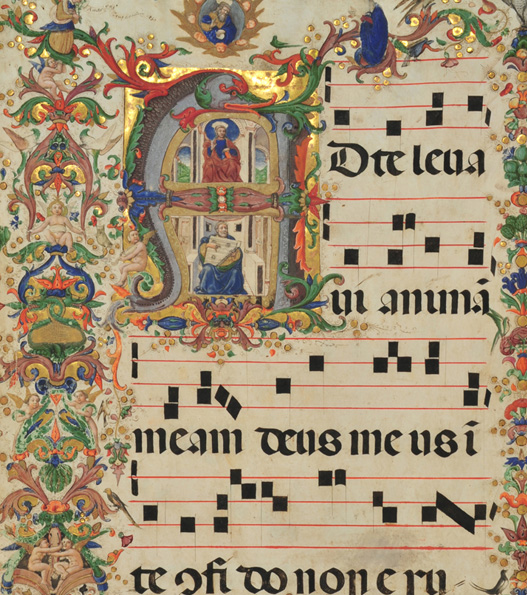 A Dte leva
vi animā
meam deus me us ī
te ↄfi do non e ru